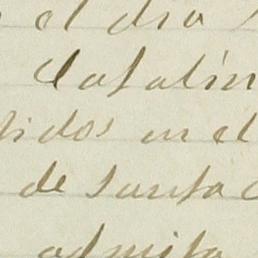 el dia
Catalin
tidos en el
de Santa C
admita